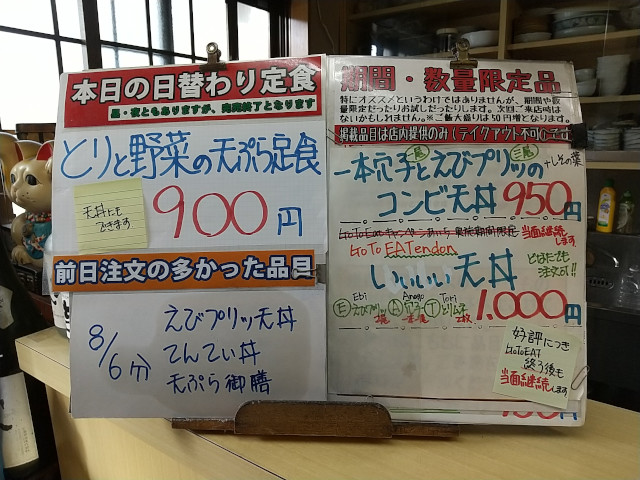 本日の日替わり定食
昼・夜ともありますが、売切終了となります
とりと野菜の天ぷら定食
天丼にも
できます
900円
前日注文の多かった品目
8/6分
えびプリッ天丼
てんてい丼
天ぷら御膳
期間・数量限定品
特にオススメというわけではありませんが、期間や数
量限定だったりお試しだったりします。次回ご来店時は
ないかもしれません。※ご飯大盛りは50円増となります。
掲載品目は店内提供のみ(テイクアウト不可)です
一本穴子とえびプリッの
+しその葉
コンビ天丼 950円
当面継続します
GoTo EATendon
いいいい天丼
となたでも
注文可!!
Ebi Anago Tori
E えびプリッ2尾 A 穴子一本 T とりム子2枚
1.000円
好評につき
GoToEAT
終了後も
当面継続します